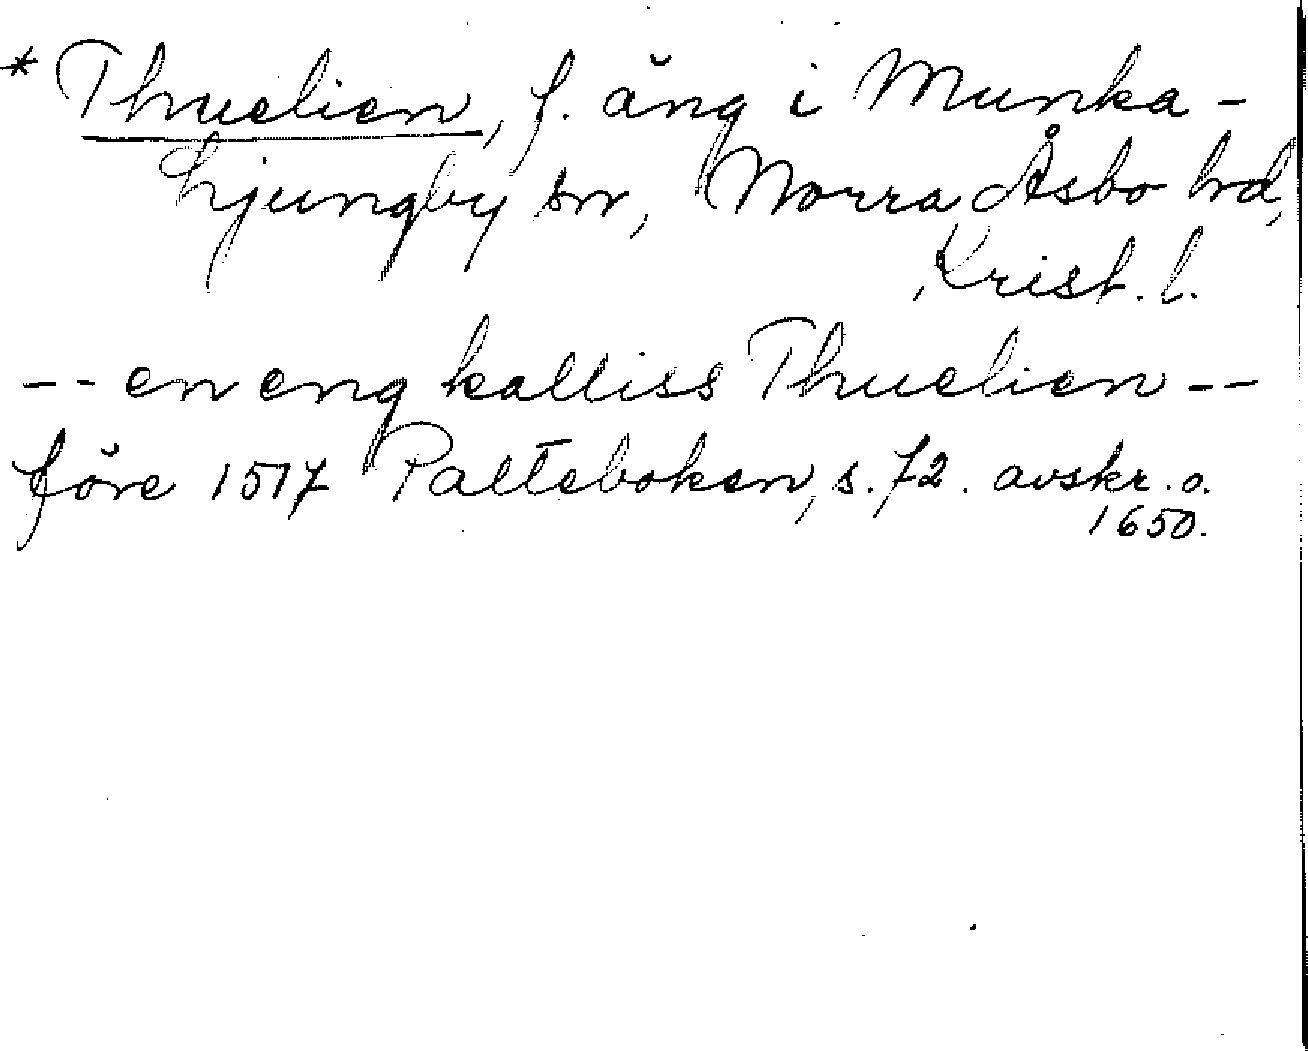 * Thuelien, f. äng i Munka-
Ljungby sn, Norra Åsbo hd,
Krist. l.
-- en eng kalliss Thuelien --
före 1517 Palteboken, s. 72. avskr. o.
1650.